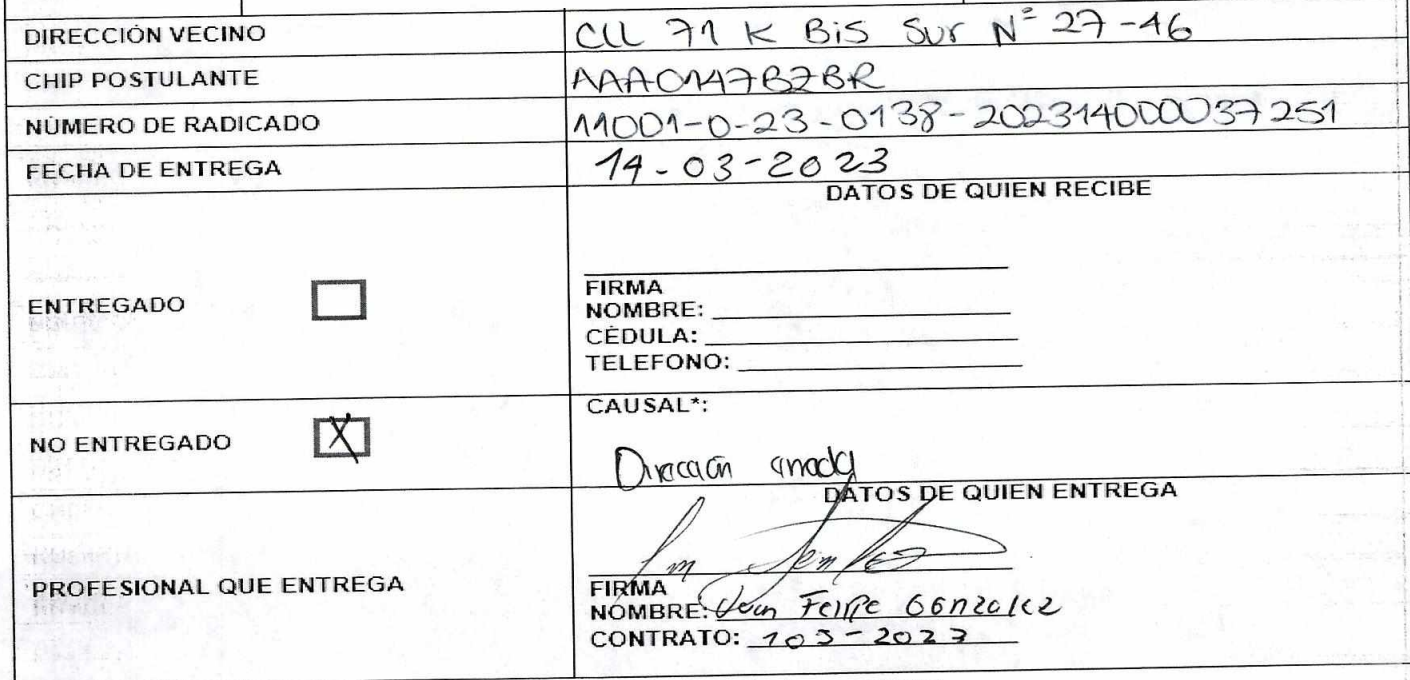 DIRECCIÓN VECINO CLL 71 K Bis Sur N° 27-46
CHIP POSTULANTE AAA0147BZBR
NÚMERO DE RADICADO 11001-0-23-0138-202314000037251
FECHA DE ENTREGA 14-03-2023
DATOS DE QUIEN RECIBE
ENTREGADO
FIRMA
NOMBRE:
CÉDULA:
TELEFONO:
NO ENTREGADO X
CAUSAL*:
Dirección
DATOS DE QUIEN ENTREGA
PROFESIONAL QUE ENTREGA
FIRMA
NOMBRE: Juan Felipe Gonzalez
CONTRATO: 103-2023